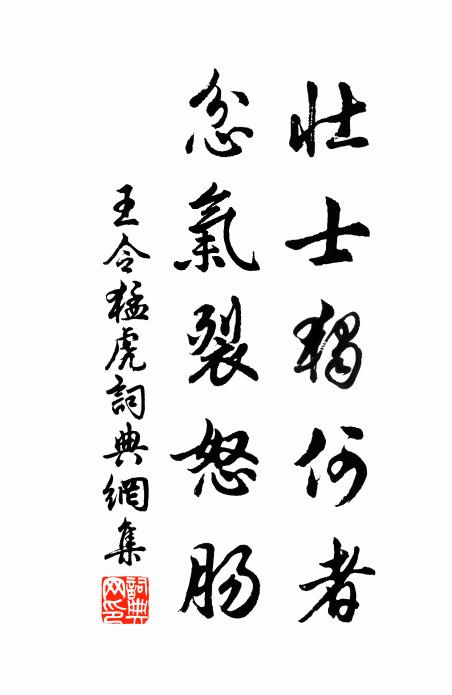 壮士獨何者
忿氣裂怒肠
王令猛虎詞典網集
詞典網印